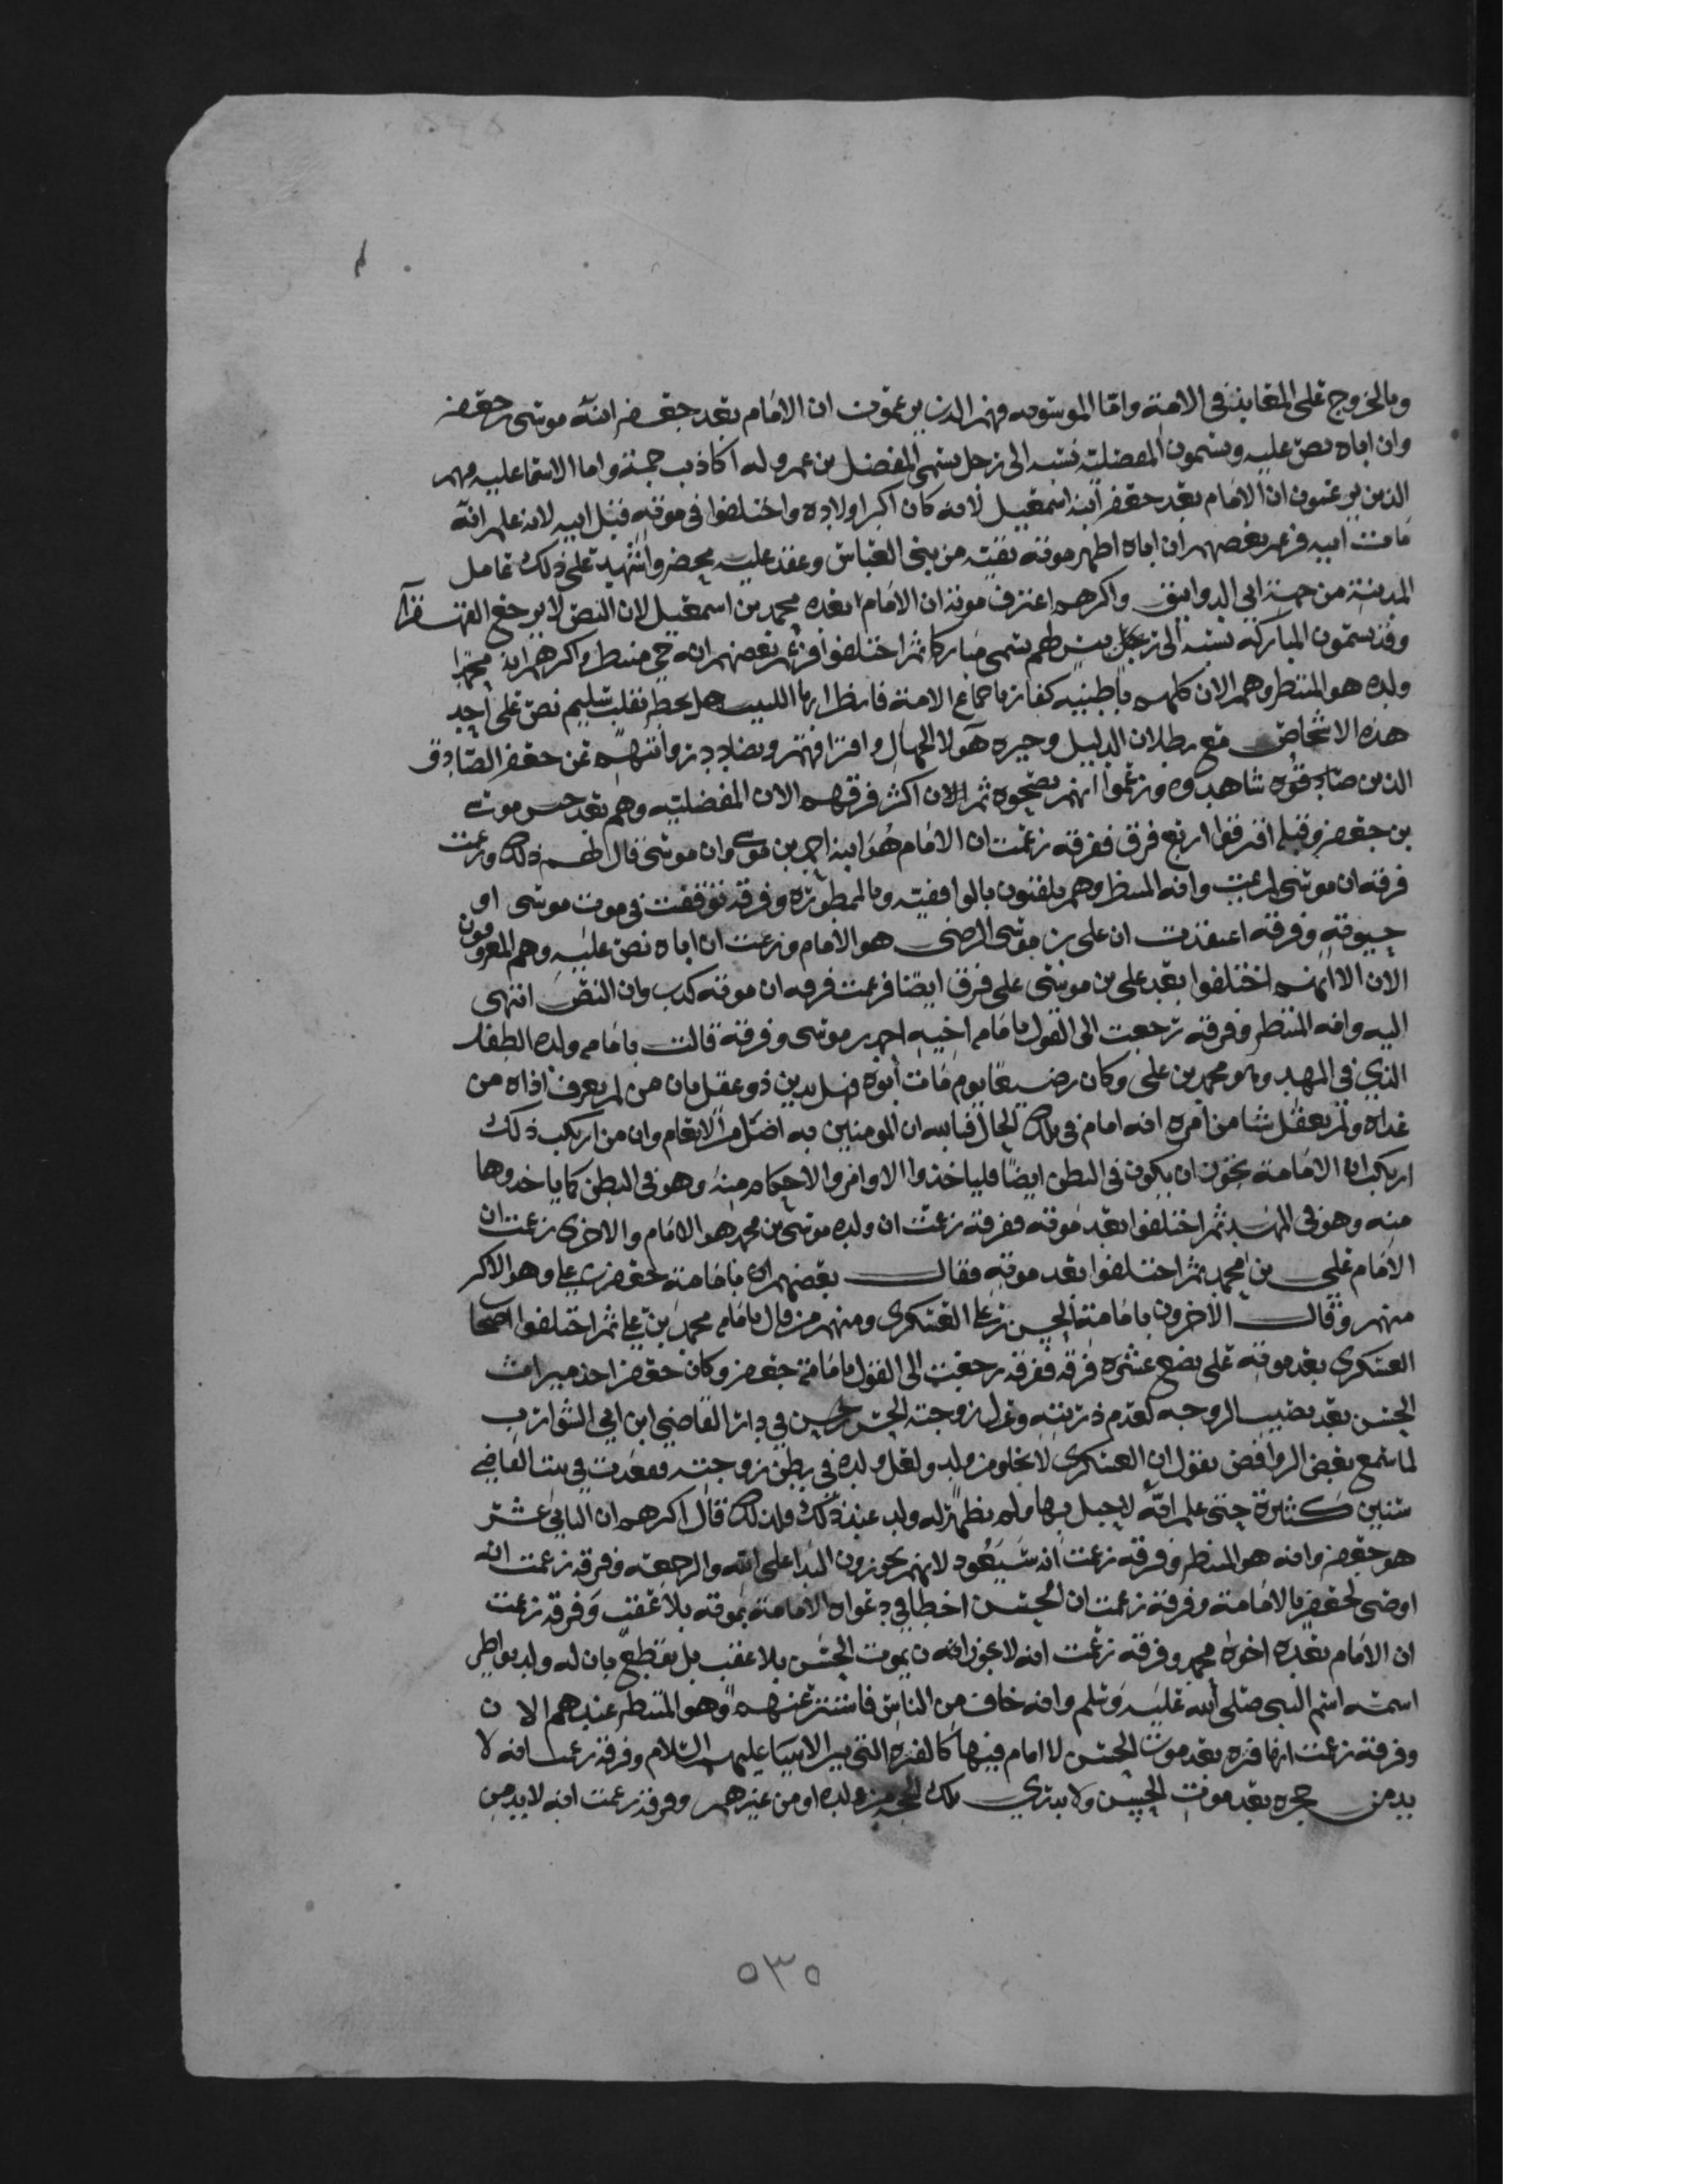 وبالخروج على في الامة واما الموسويه فهم الذين يزعمون ان الامام بعد جعفر ابنه موسى بن جعفر
وان اباه نص عليه ويسمون المفضلية نسبه الى رجل يسمى المفضل بن عمرو له اكاذيب جمة واما الاسماعليه فهم
الذين يزعمون ان الامام بعد جعفر ابنه اسمعيل لانه كان اكبر اولاده واختلفوا في موته قبل ابيه لانه علم انه
مات ابيه فزعم بعضهم ان اباه اظهر موته تقية من بني العباس وعقد عليه محضر واشهد على ذلك عامل
المدينة من جهة ابي الدوانيق واكثرهم اعترف موته ان الامام بعده محمد بن اسمعيل لان النص لا يرجع القهقرا
وقد يسمون المباركه نسبه الى رجل يسمى مباركا ثم اختلفوا فزعم بعضهم انه حي منتظر واكثرهم ان محمدا
ولده هو المنتظر وهم الان كلهم باطنيه كفار باجماع الامة فانظر ايها اللبيب هل يخطر بقلب سليم نص على احد
هذه الاشخاص مع بطلان الدليل وحيره هولا الجهال وافتراقهم وتضادد روايتهم عن جعفر الصادق
الذين صادقوه شاهدوه وزعموا انهم ثم الان اكثر فرقهم الان المفضلية وهم بعد حبس موسى
بن جعفر وقتله افترقوا اربع فرق ففرقه زعمت ان الامام هو ابنه احمد بن موسى وان موسى قال لهم ذلك وزعمت
فرقه ان موسى لم يمت وانه المنتظر وهم يلقبون بالواقفية وبالممطورة وفرقه توقفت في موت موسى او
حيوته وفرقه اعتقدت ان علي بن موسى الرضى هو الامام وزعمت ان اباه نص عليه وهم المعروفون
الان الا انهم اختلفوا بعد علي بن موسى على فرق ايضا فزعمت فرقه ان موته كذب وان النص انتهى
اليه وانه المنتظر وفرقه رجعت الى القول بامام اخيه احمد بن موسى وفرقة قالت بامام ولده الطفل
الذي في المهد وهو محمد بن علي وكان رضيعا يوم مات ابوه فهل يدين ذو عقل بان من لم يعرف اذاه من
غداه ولم يعقل شيا من امره انه امام في تلك الحال فبالله ان المومنين به اضل من الانعام وان من ارتكب ذلك
ارتكب ان الامامة يجوز ان يكون في البطن ايضا فلياخذوا الاوامر والاحكام منه وهو في البطن كما ياخذوها
منه وهو في المهد ثم اختلفوا بعد موته ففرقة زعمت ان ولده موسى بن محمد هو الامام والاخرى زعمت ان
الامام علي بن محمد ثم اختلفوا بعد موته فقال بعضهم ان بامامة جعفر بن علي وهو الاكثر
منهم وقال الاخرون بامامة الحسن بن علي العسكري ومنهم من قال بامام محمد بن علي ثم اختلفوا اصحاب
العسكري بعد موته على بضع عشره فرقه ففرقه رجعت الى القول بامامة جعفر وكان جعفر اخذ ميراث
الحسن بعد نصيب الزوجه لعدم ذريته وعزل زوجته الحسن حسين في دار القاضي ابن ابي الشوارب
لما سمع بعض الروافض يقول ان العسكري لا يخلو من ولد ولعل ولده في بطن زوجته فقعدت في بيت القاضي
سنين كثيرة حتى علم انه لا حبل بها ولم يظهر له ولد عند ذلك فلذلك قال اكثرهم ان الثاني عشر
هو جعفر وانه هو المنتظر وفرقه زعمت انه سيعود لانهم يجوزون البدا على الله والرجعه وفرقه زعمت انه
اوصى لجعفر بالامامة وفرقه زعمت ان الحسن اخطا في دعواه الامامة بموته بلا عقب وفرقه زعمت
ان الامام بعده اخوه محمد وفرقه زعمت انه لا يجوز ان يموت الحسن بلا عقب بل نقطع بان له ولد يواطي
اسمه اسم النبي صلى الله عليه وسلم وانه خاف من الناس فاستتر عنهم وهو المنتظر عندهم الان
وفرقه زعمت انها فتره بعد موت الحسن لا امام فيها كالفتره التي بين الانبيا عليهم السلام وفرقه زعمت انه لا
بد من حجره بعد موت الحسن ولا يدري تلك الحجه من ولده او من غيرهم وفرقه زعمت انه لا بد من
٥٣٥